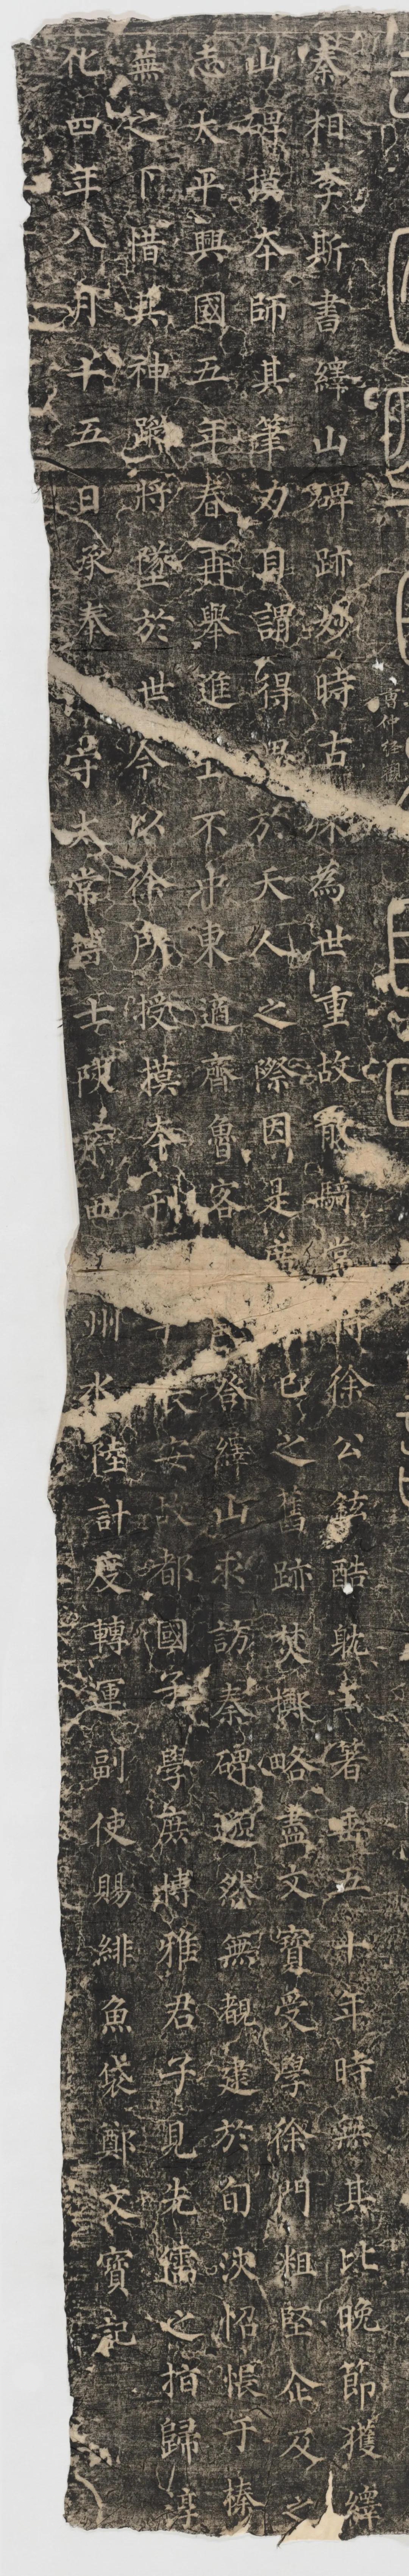 曹仲經觀
秦相李斯書繹山碑跡妙時古殊為世重故散騎常侍徐公鉉酷躭玉著垂五十年時無其比晚節獲繹
山碑摸本師其筆力自謂得思於天人之際因是廣己之舊跡焚擲略盡文寶受學徐門粗堅企及之
志太平興國五年春再舉進士不中東適齊魯客鄒邑登繹山求訪秦碑邈然無覩逮於旬浹怊悵于榛
蕪之下惜其神蹤將墜於世今以徐所授摸本刊石于長安故都國子學庶博雅君子見先儒之指歸淳
化四年八月十五日承奉郎守太常博士陝府西諸州水陸計度轉運副使賜緋魚袋鄭文寶記